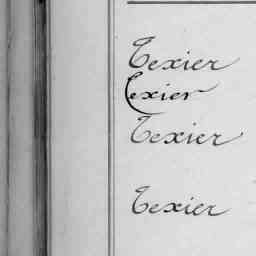 Texier
Texier
Texier
Texier